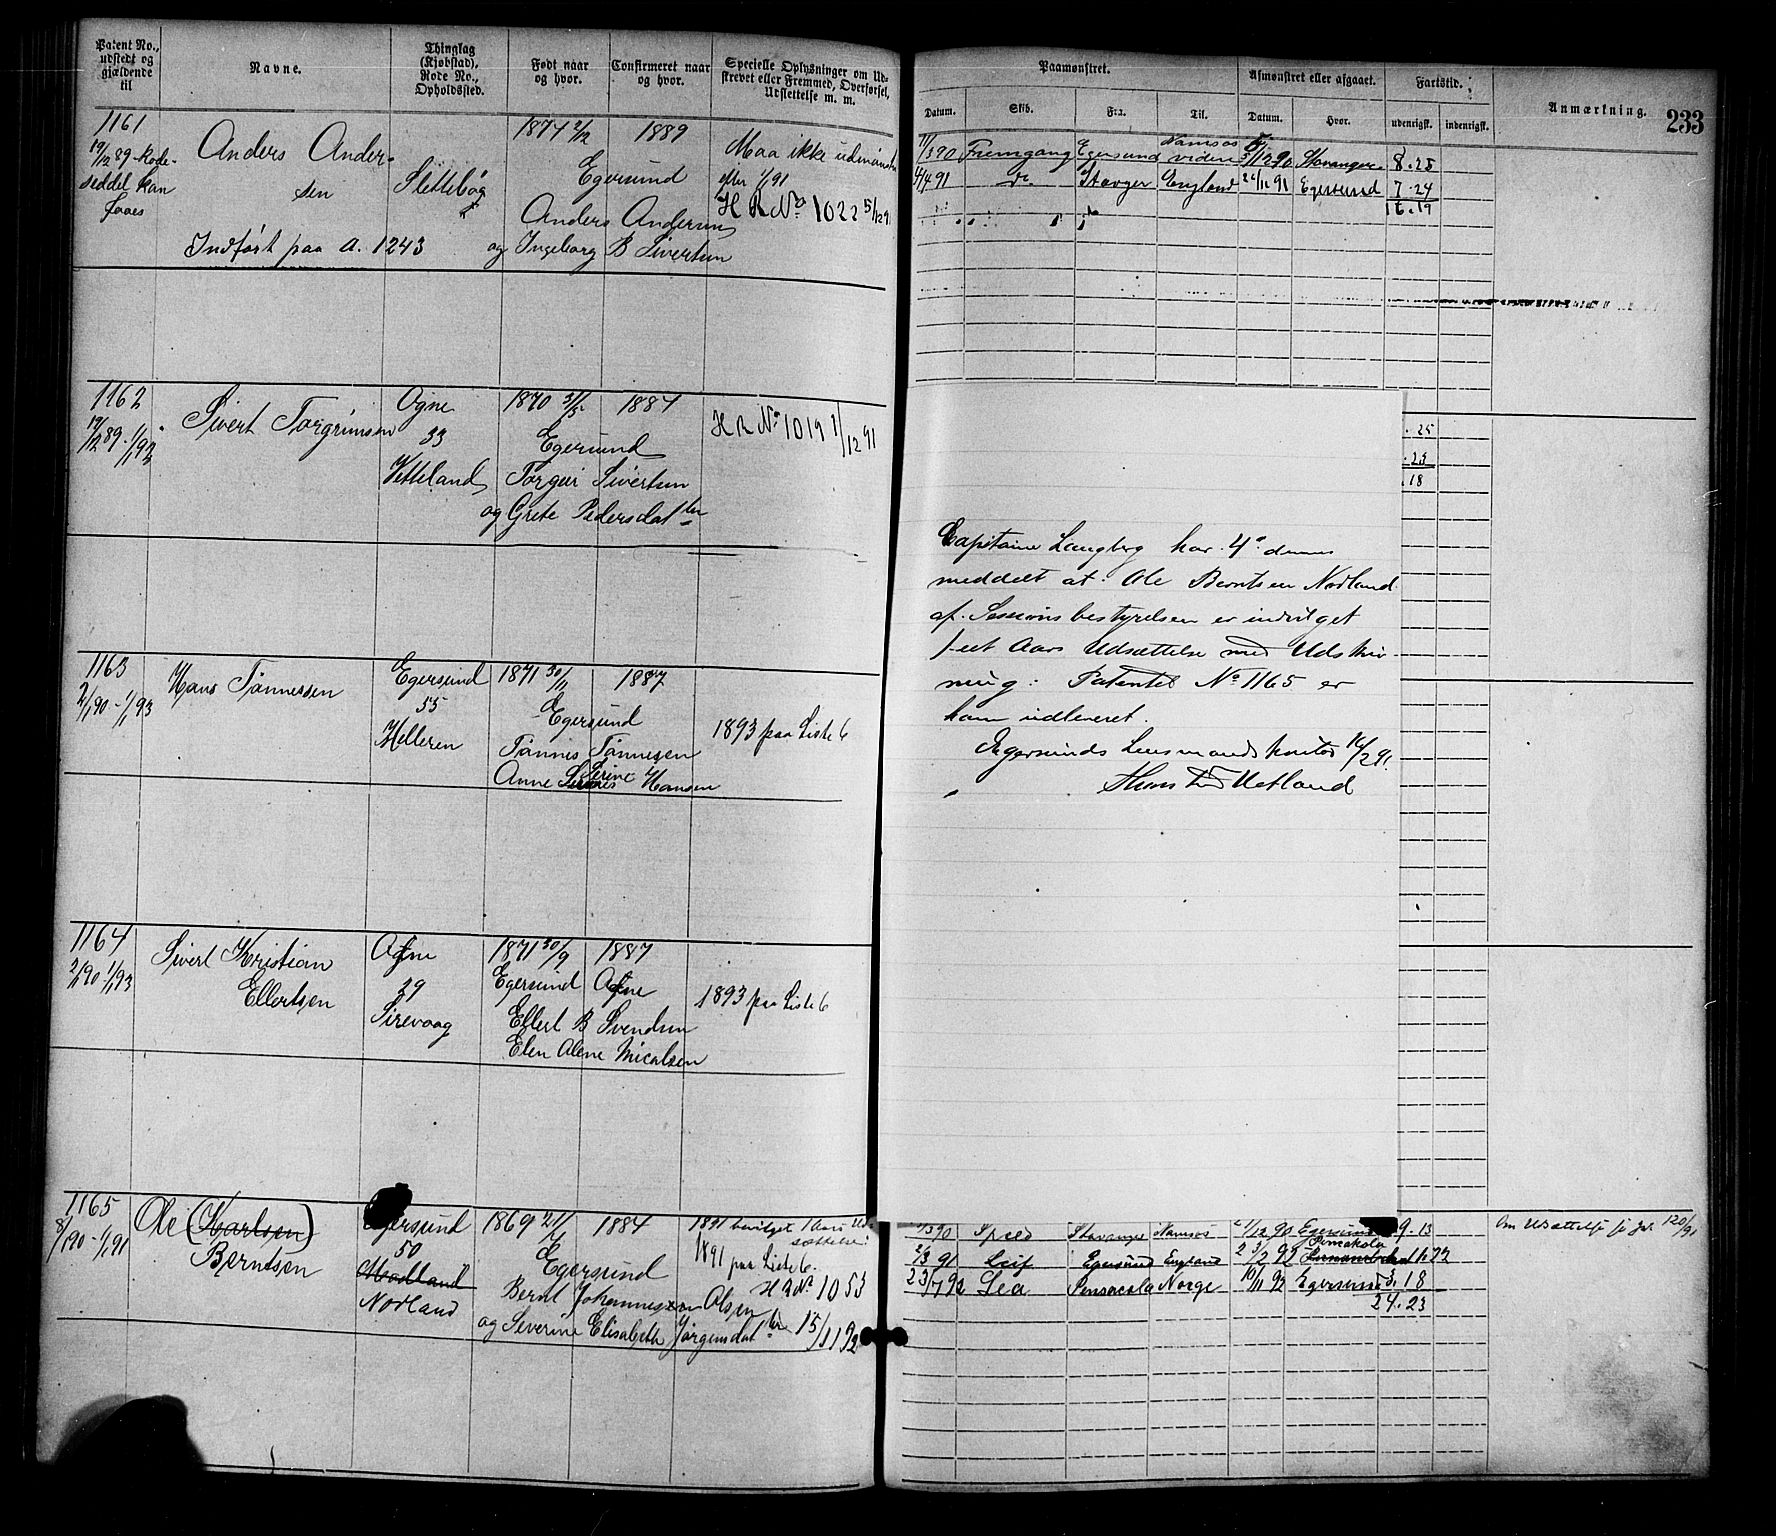 Patent No., udstedt og gjældende til
Navne.
Thinglag (Kjøbstad), Rode No., Opholdssted.
Født naar og hvor.
Confirmeret naar og hvor.
Specielle Oplysninger om Udskrevet eller Fremmed, Overførsel, Udslettelse m. m.
Paamønstret.
Datum. Skib. Fra. Til.
Afmønstret eller afgaaet.
Datum. Hvor.
Fartstid.
udenrigsk. indenrigsk.
Anmærkning.
233
1161
19/12 89 - Rode-
seddel kan
faaes
Anders Ander-
sen
Slettebøg
1874 2/12 1889
Egersund
Anders Andersen
og Ingeborg B Sivertsen
Maa ikke udmønstr
efter 1/1 91
H R No 1022 5/12 91
Indført paa A. 1243
11/3 90 Fremgang Egersund Namsos videre 5/12 90 Stavanger 8.25
4/4 91 do. Stavger England 22/11 91 Egersund 7.24
16.19
1162
19/12 89 - 1/1 92
Sivert Torgrimsen
Ogne
33
Vetteland
1870 3/5 1884
Egersund
Torger Sivertsen
og Grete Pedersdatter
H R No 1019 1/12 91
.25
.23
.18
Capitaine Langberg har 4de dennes
meddelt at Ole Berntsen Norland
af Sessionsbestyrelsen er indvilget
1 et Aars Udsættelse med Udskriv
ning: Patentet No 1165 er
ham udleveret.
Egersunds Lensmandskontor 16/2 91.
1163
2/1 90 - 1/1 93
Hans Tønnessen
Egersund
55
Helleren
1871 30/11 1887
Egersund
Tønnes Tønnesen
Anne Serine Hansen
1893 paa Liste 6
1164
2/1 90 1/1 93
Sivert Kristian
Ellertsen
Ogne
29
Sirevaag
1871 30/9 1887
Egersund Ogne
Ellert B Svendsen
Elen Alene Micalsen
1893 paa Liste 6
1165
8/1 90 - 1/1 91
Ole (Karlsen)
Berntsen
Egersund
50
Modland
Norland
1869 21/1 1884
Egersund
Bernt Johannesen Olsen
og Severine Elisabeth Jørgensdatter
1891 bevilget 1 Aars Ud-
sættelse.
1891 paa Liste 6.
H R No 1053
15/11 92
/3 90 Speed Stavanger Namsos 2/12 90 Egersund 9.13
2/3 91 Leif Egersund England 23/2 92 Pensakola 11.22
23/7 92 Lea Pensacola Norge 10/11 92 Egersund 3.18
24.23
Om Udsættelse se Jr. 120/91